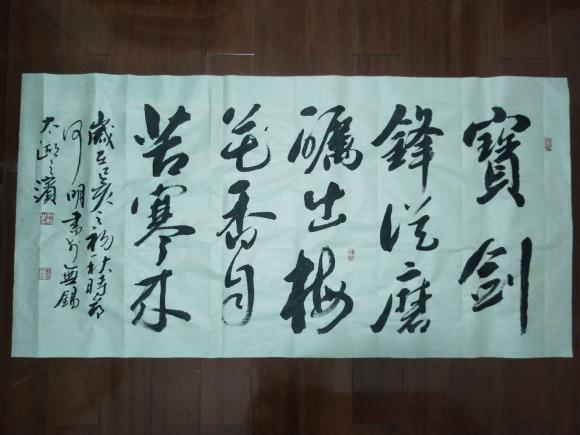 寶劍
鋒從磨
礪出梅
花香自
苦寒來
歲在己亥之初秋時節
何明書於無錫
太湖之濱